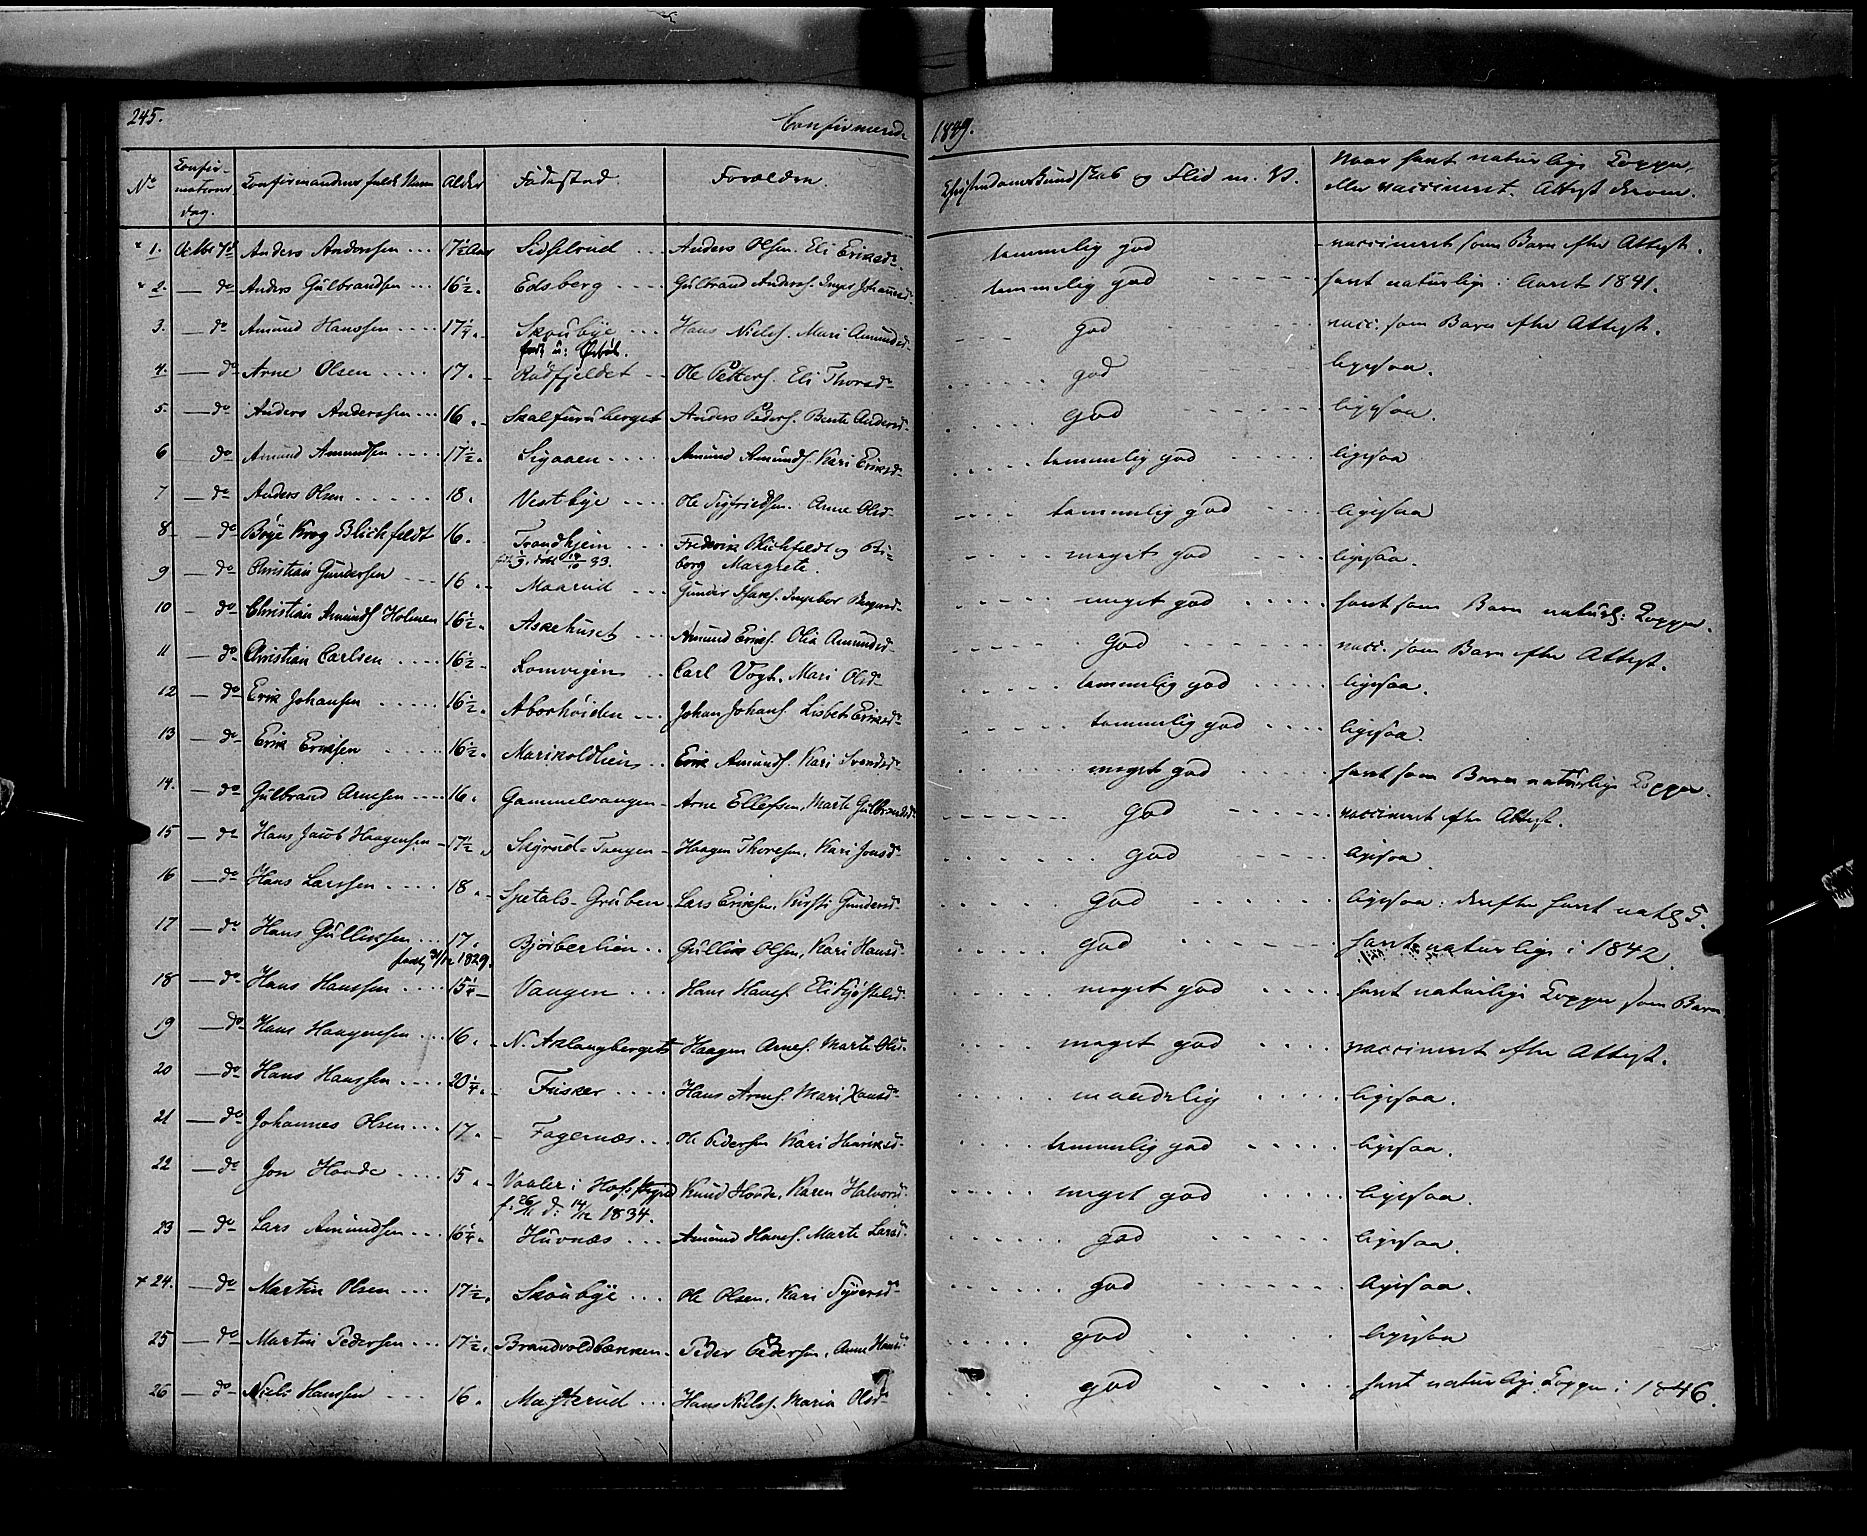 245. Confirmerede 1849.
No Confirmations dag. Confirmandens fulde Navn Alder Fødested Forældre. Christendoms Kundskab og Flid m. V. Naar havt naturlige Kopper, eller vaccineret. Attest derom.
1. Octbr 7de Anders Andersen 17½ Aar Sidselrud Anders Olsen. Eli Eriksdr temmelig god vaccineret som Barn efter Attest.
2. do Anders Gulbrandsen 16½. Edsberg Gulbrand Anders. Inger Johannesd temmelig god havt naturlige i Aaret 1841.
3. do Amund Hanssen 17¼. Skoubye Hans Niels. Mari Amundsd. god vacc. som Barn efter Attest.
4. do Arne Olsen 17. Rudfjeldet Ole Peters. Eli Thorsd god ligesaa.
5. do Anders Anderssen 16. Skalfuruberget Anders Peders. Bente Andersd god ligesaa.
6 do Amund Amundsen 17½. Sigaaen Amund Amunds. Kari Eriksd temmelig god ligesaa
7 do Anders Olsen 18. Vestbye Ole Sigfriedsen. Anne Olsd temmelig god ligesaa
8 do Böye Krog Blichfeldt 16. Trondhjem Frederik Blichfeldt og Birgitte Margrete. meget god ligesaa.
9 do Christian Gundersen 16. Maarud Gunder Isaks. Ingebor meget god havt som Barn naturl: Kopper.
10 do Christian Amunds Holmen 16½. Askehuset Amund Eriks. Olia Amundsd god vacc. som Barn efter Attest.
11 do Christian Carlsen 16½ Romvigen Carl Vogt. Mari Olsd temmelig god ligesaa.
12 do Erik Johansen 16½. Aborhöiden Johan Johans. Lisbet Eriksd temmelig god ligesaa.
13 do Erik Eriksen 16½. Marikoldlien Erik Amunds. Kari Svendsd meget god havt som Barn naturlige Kopper.
14. do Gulbrand Arnesen 16. Gammelvangen Arne Ellefsen, Marte Gulbrandsd god vaccineret efter Attest.
15 do Hans Jacob Haagensen 17½ Skyrud-Tangen Haagen Thoresen, Kari Jonsd god ligesaa
16 do Hans Larssen 18. Spetals-Gruben Lars Eriksen, Kirsti Gundersd god ligesaa: derefter havt
17 do Hans Gulliksen 17. Björberlien Gullik Olsen, Kari Hansd god havt naturlige i 1842.
födt 1829.
18 do Hans Hanssen 15¼ Vangen Hans Hans. Eli Kjöstelsd meget god havt naturlige Kopper som Barn
19 do Hans Haagensen 16. N. Aklangberget Haagen Arnes. Marte Olsd. meget god vaccineret efter Attest.
20 do Hans Hanssen 20¼. Frisker Hans Arnes. Mari Hansd maadelig ligesaa.
21 do Johannes Olsen 17. Fagernæs Ole Pedersen Kari Henriksd temmelig god ligesaa.
22 do Jon Hovde 15. Vaaler i Hofs Knud Hovde, Karen Halvorsd meget god ligesaa.
1834.
23 do Lars Amundsen 16¼. Huvnæs Amund Hans. Marte Larsd god ligesaa.
24. do Martin Olsen 17½. Skoubye Ole Olsen, Kari Syversd god ligesaa.
25 do Martin Pedersen 17½. Brandvoldbækken Peder Pedersen, Anne Hansd god ligesaa
26 do Niels Hanssen 16. Masterud Hans Niels. Maria Olsd god havt naturlige Kopper i 1846.